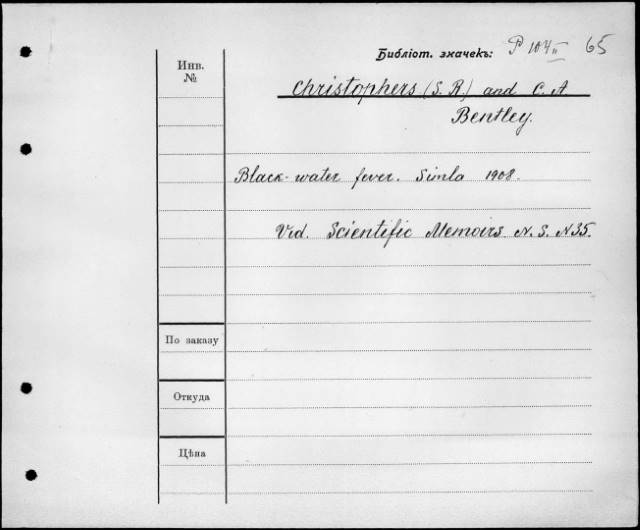 Библіот. значекъ: P 104 II 65
Инв.
№
Christophers (S. R.) and C. A.
Bentley.
Black-water fever. Simla 1908.
Vid. Scientific Memoirs N. S. N 35.
По заказу
Откуда
Цѣна